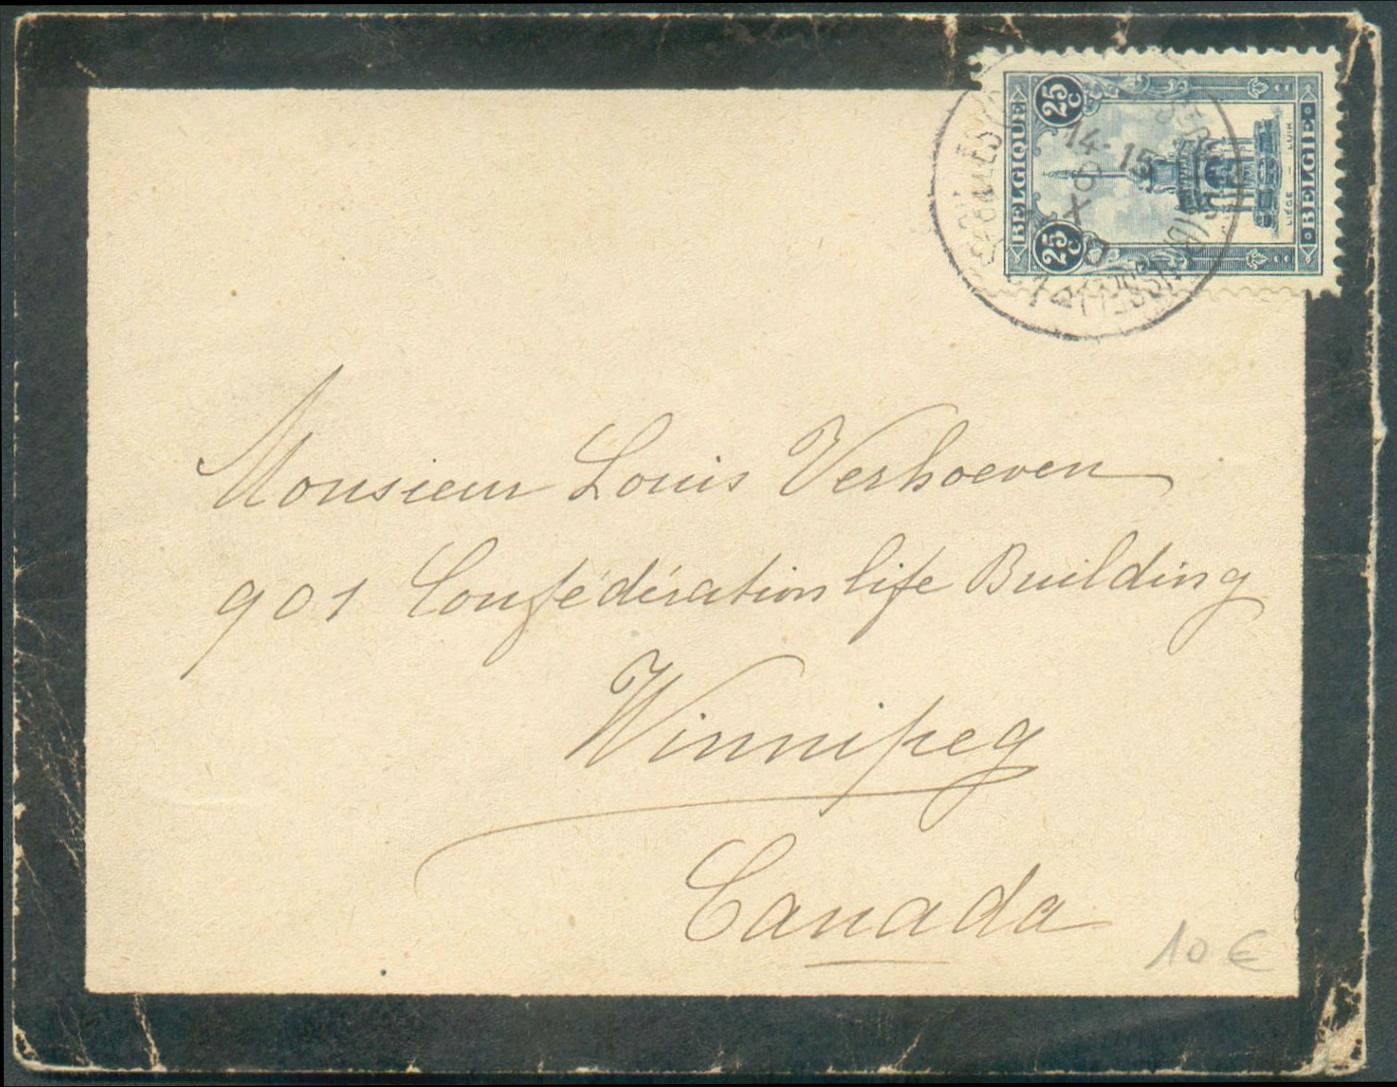 BELGIQUE
25 C
25 C
LIÉGE — LUIK
BELGIE
14-15
8
X
Monsieur Louis Verhoeven
901 Confédération life Building
Winnipeg
Canada
10 €